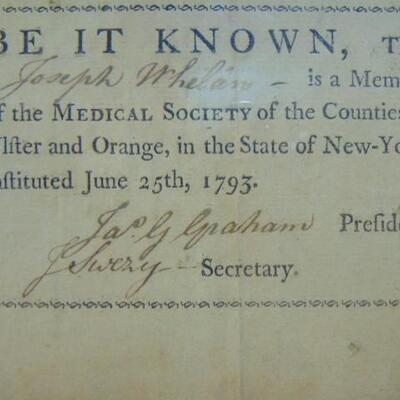 BE IT KNOWN, T
Joseph Whelan — is a Mem
of the MEDICAL SOCIETY of the Counties
Ulſter and Orange, in the State of New-Yo
nſtituted June 25th, 1793.
Jas. G Graham Preside
J Swezy — Secretary.